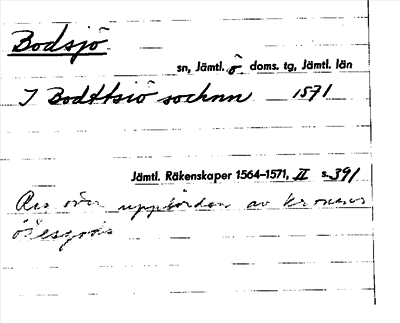 Bodsjö
sn, Jämtl. ö. doms. tg, Jämtl. län
I Bodttsiö sochnn 1571
Jämtl. Räkenskaper 1564–1571, II s. 391
över uppbörden av kronones
ödesgods